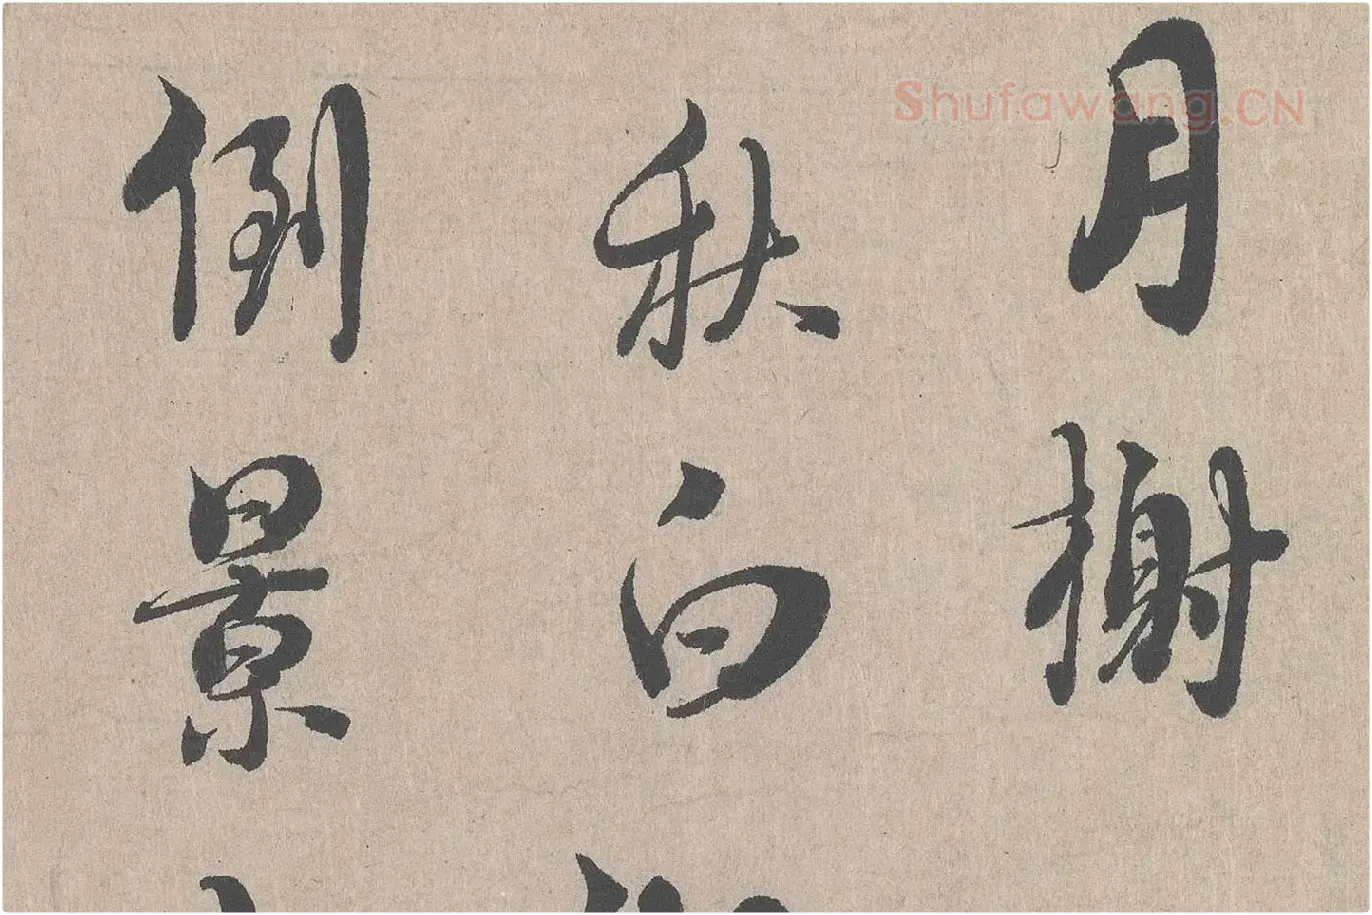 月榭
秋白
倒景
Shufawang.CN